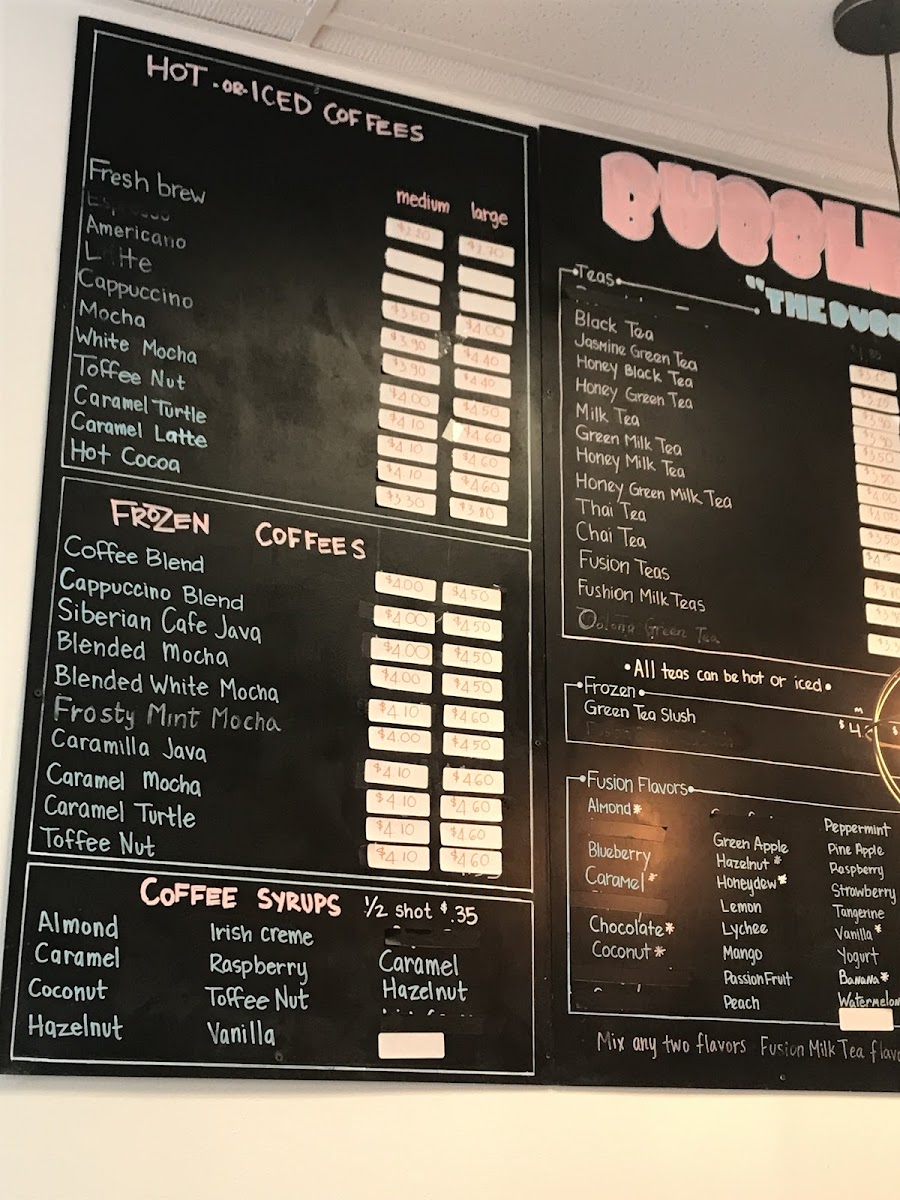 HOT -OR- ICED COFFEES
medium large
Fresh brew $2.20 $2.70
Espresso
Americano
Latte $3.50 $4.00
Cappuccino $3.90 $4.40
Mocha $3.90 $4.40
White Mocha $4.00 $4.50
Toffee Nut $4.10 $4.60
Caramel Turtle $4.10 $4.60
Caramel Latte $4.10 $4.60
Hot Cocoa $3.30 $3.80
FROZEN COFFEES
Coffee Blend $4.00 $4.50
Cappuccino Blend $4.00 $4.50
Siberian Cafe Java $4.00 $4.50
Blended Mocha $4.00 $4.50
Blended White Mocha $4.10 $4.60
Frosty Mint Mocha $4.00 $4.50
Caramilla Java $4.10 $4.60
Caramel Mocha $4.10 $4.60
Caramel Turtle $4.10 $4.60
Toffee Nut $4.10 $4.60
COFFEE SYRUPS 1/2 shot $.35
Almond Irish creme
Caramel Raspberry Caramel
Coconut Toffee Nut Hazelnut
Hazelnut Vanilla
"THE
Teas
Black Tea
Jasmine Green Tea
Honey Black Tea
Honey Green Tea
Milk Tea
Green Milk Tea
Honey Milk Tea
Honey Green Milk Tea
Thai Tea
Chai Tea
Fusion Teas
Fushion Milk Teas
Oolong Green Tea
•All teas can be hot or iced•
Frozen
Green Tea Slush
Fusion Flavors
Almond*
Blueberry
Caramel*
Chocolate*
Coconut*
Green Apple
Hazelnut*
Honeydew*
Lemon
Lychee
Mango
Passion Fruit
Peach
Peppermint
Pine Apple
Raspberry
Strawberry
Tangerine
Vanilla*
Yogurt
Banana*
Watermelon
Mix any two flavors Fusion Milk Tea